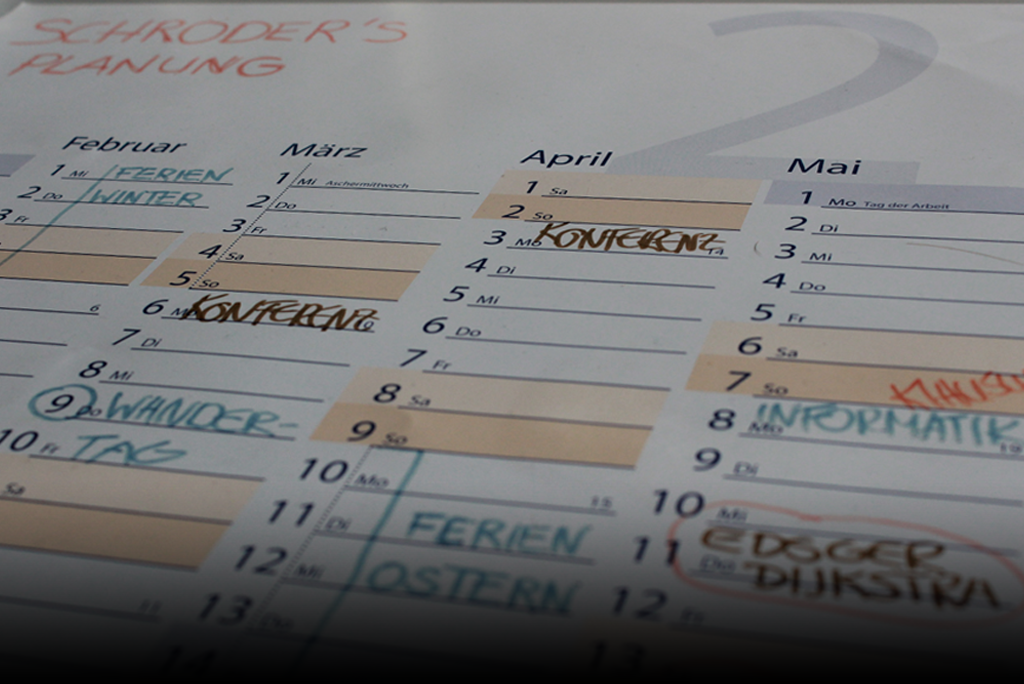 SCHRÖDER'S
PLANUNG
2
Februar
1 Mi FERIEN
2 Do WINTER
3 Fr
6
7
8 Mi
9 Do WANDER-
10 Fr TAG
Sa
11
März
1 Mi Aschermittwoch
2 Do
3 Fr
4 Sa
5 So
6 KONFERENZ
7 Di
8 Mi
9
10
11
12
13
14
April
1 Sa
2 So
3 Mo KONFERENZ 14
4 Di
5 Mi
6 Do
7 Fr
8 Sa
9 So
10 Mo 15
11 Di FERIEN
12 Mi OSTERN
13 Do
Mai
1 Mo Tag der Arbeit
2 Di
3 Mi
4 Do
5 Fr
6 Sa
7 So
8 Mo INFORMATIK 19
9 Di
10 Mi
11 Do EDSGER
DIJKSTRA
12 Fr
13